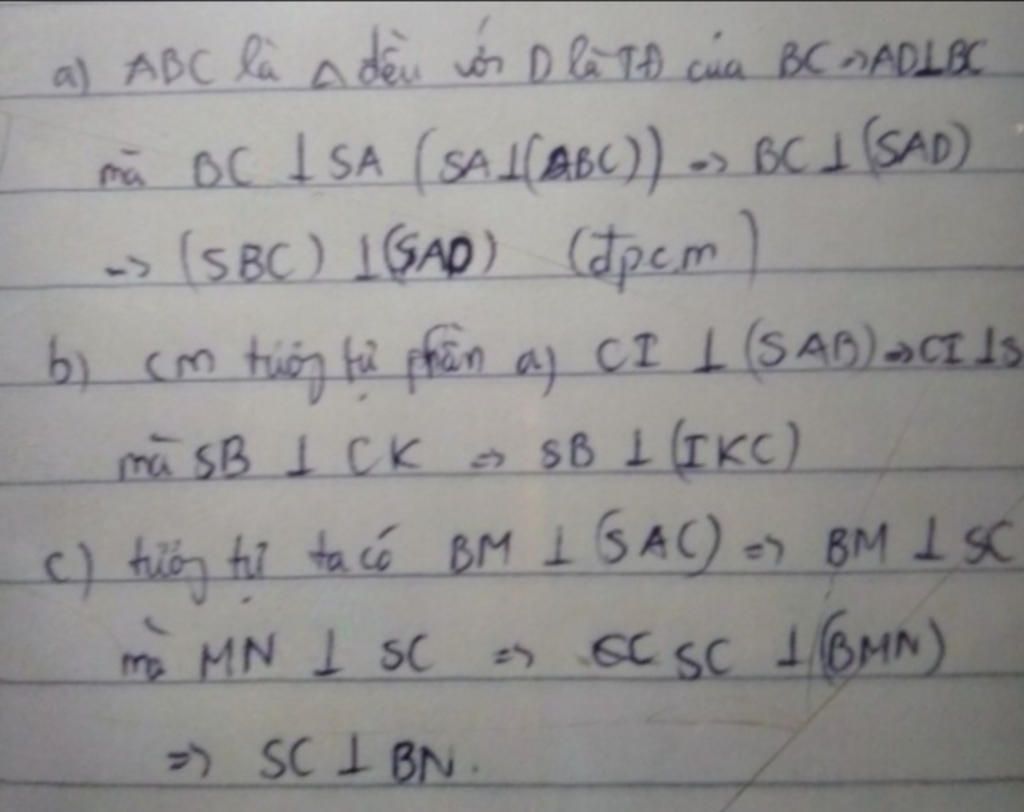 a) ABC là Δ đều với D là TĐ của BC => AD⊥BC
mà BC ⊥ SA (SA⊥(ABC)) => BC ⊥ (SAD)
=> (SBC) ⊥ (SAD) (đpcm)
b) cm tương tự phần a) CI ⊥ (SAB) => CI ⊥ S
mà SB ⊥ CK => SB ⊥ (IKC)
c) tương tự ta có BM ⊥ (SAC) => BM ⊥ SC
mà MN ⊥ SC => SC SC ⊥ (BMN)
=> SC ⊥ BN.